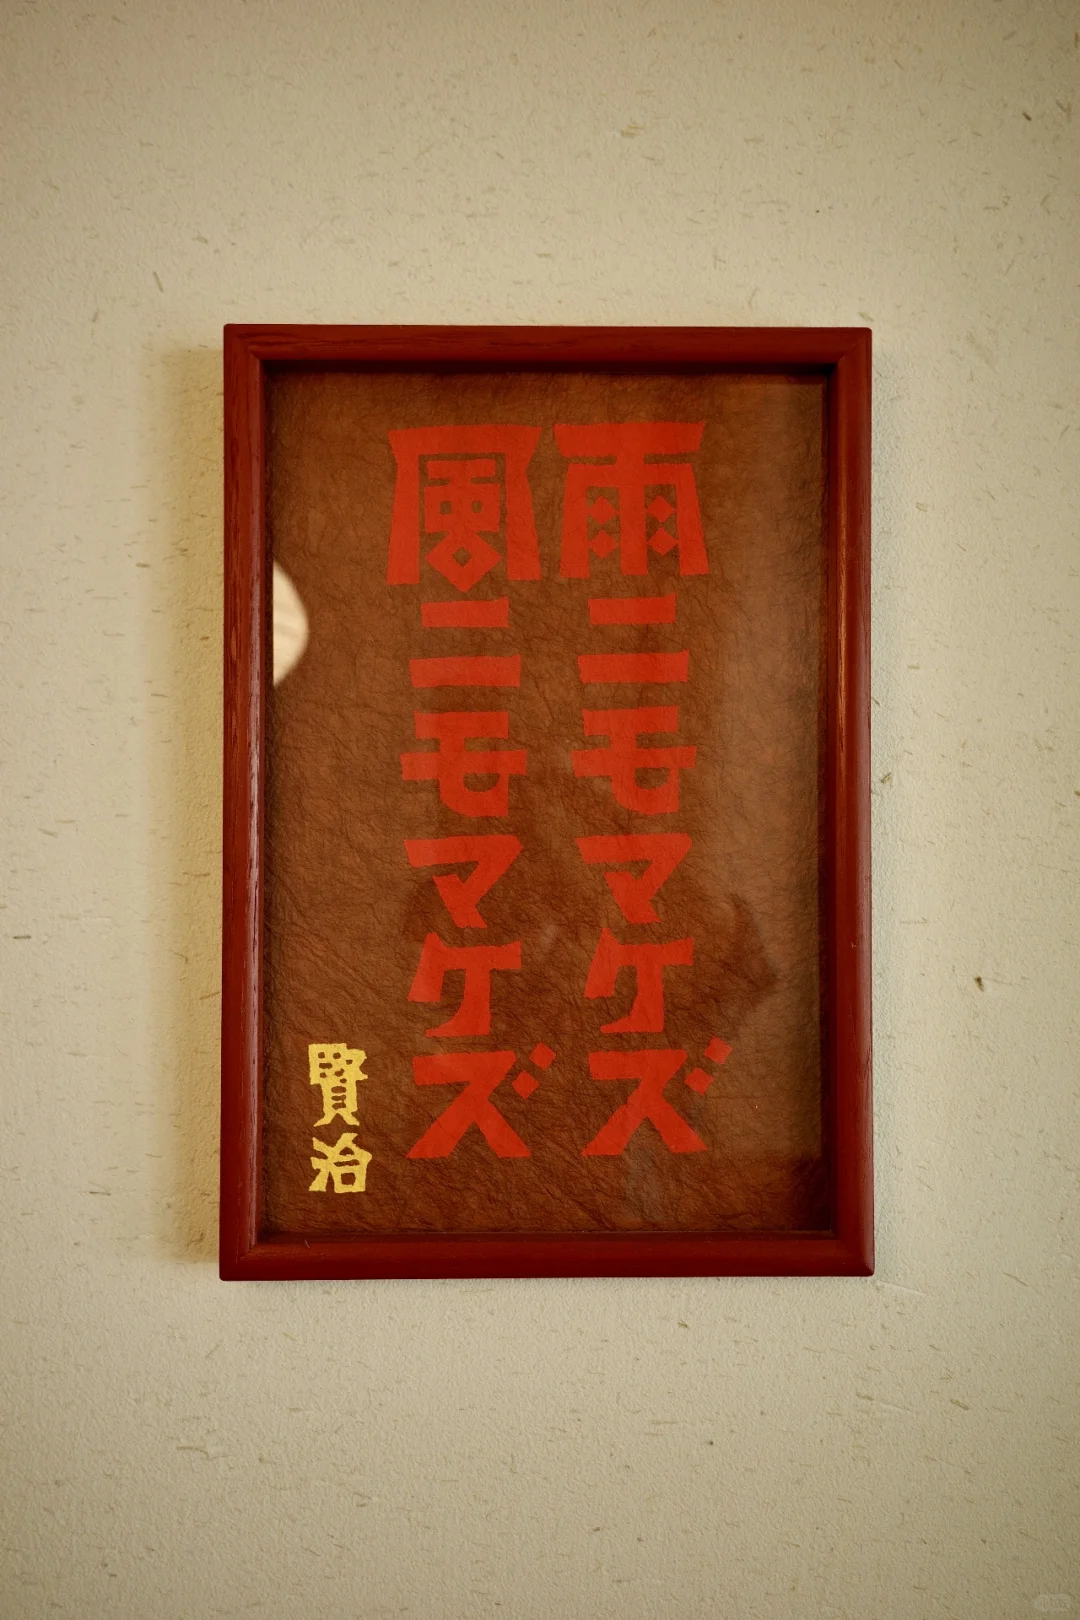 雨ニモマケズ
風ニモマケズ
賢治